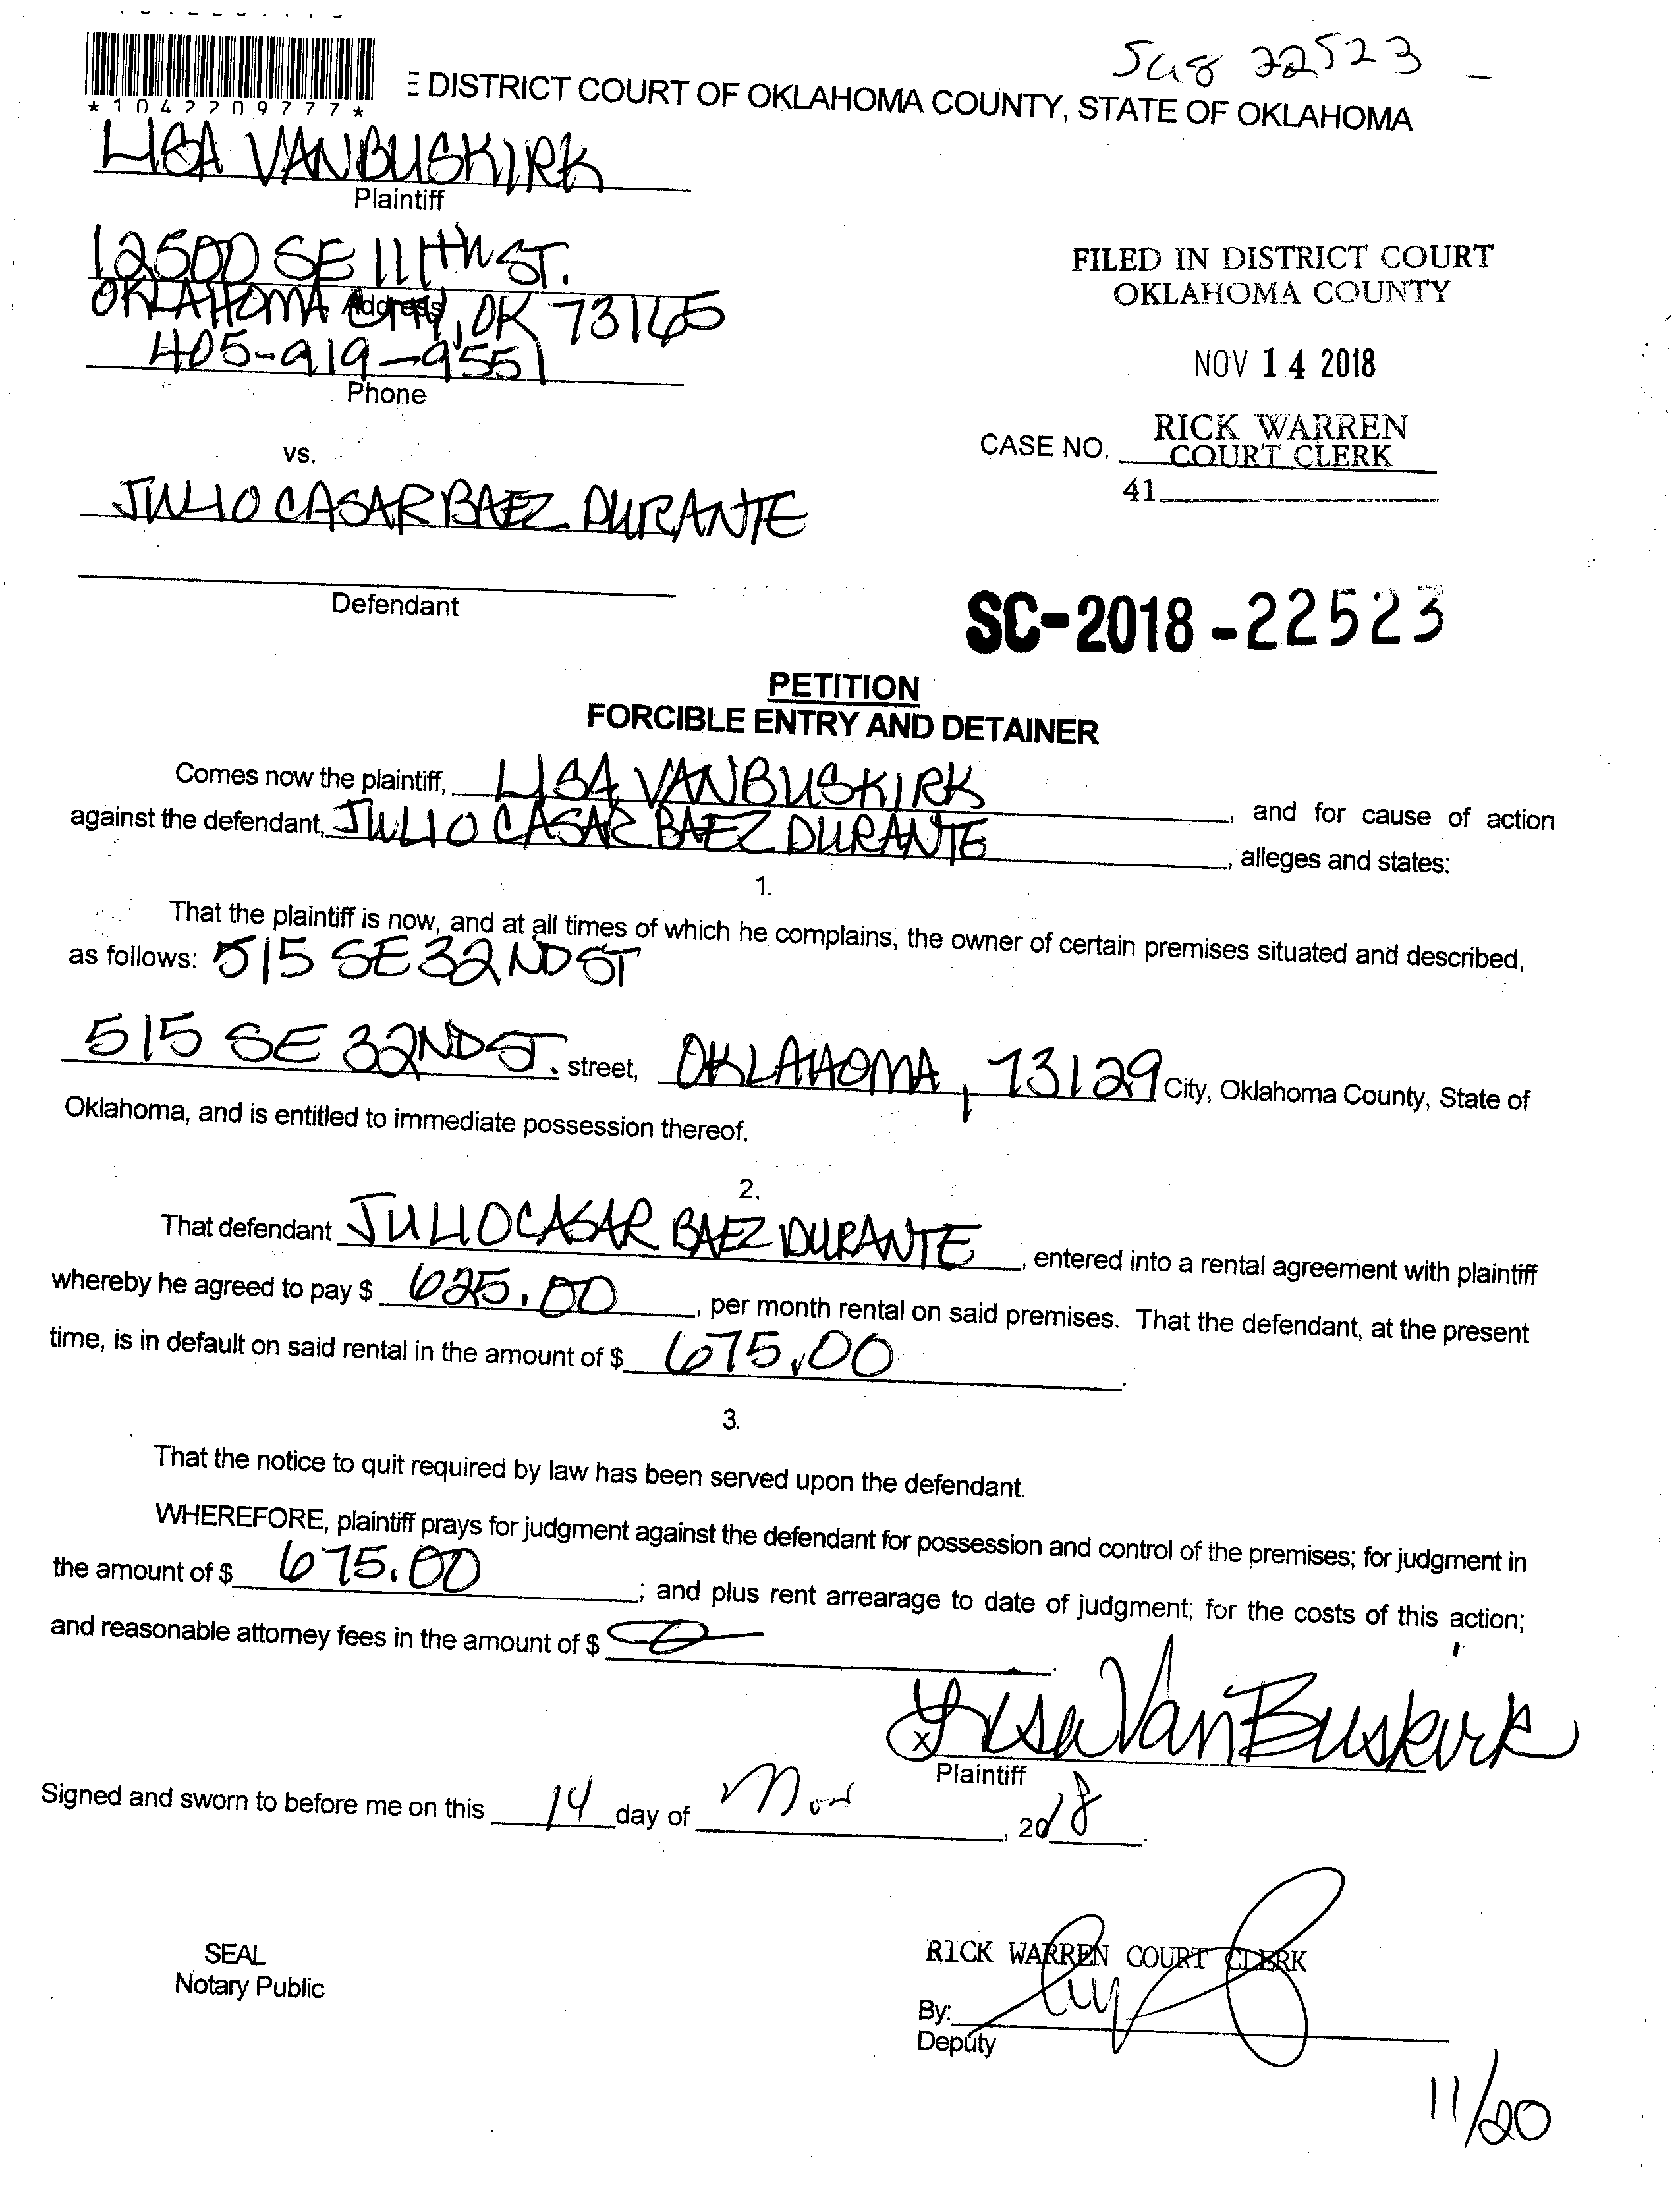 SC18 22523
*1042209777*
E DISTRICT COURT OF OKLAHOMA COUNTY, STATE OF OKLAHOMA
LISA VANBUSKIRK
Plaintiff
12500 SE 111TH ST.
Address
OKLAHOMA CITY, OK 73165
405-919-9551
Phone
FILED IN DISTRICT COURT
OKLAHOMA COUNTY
NOV 14 2018
RICK WARREN
CASE NO. COURT CLERK
41
vs.
JULIO CASAR BAEZ DURANTE
Defendant
SC-2018-22523
PETITION
FORCIBLE ENTRY AND DETAINER
Comes now the plaintiff, LISA VANBUSKIRK, and for cause of action
against the defendant, JULIO CASAR BAEZ DURANTE, alleges and states:
1.
That the plaintiff is now, and at all times of which he complains, the owner of certain premises situated and described,
as follows: 515 SE 32ND ST
515 SE 32ND ST. street, OKLAHOMA, 73129 City, Oklahoma County, State of
Oklahoma, and is entitled to immediate possession thereof.
2.
That defendant JULIO CASAR BAEZ DURANTE, entered into a rental agreement with plaintiff
whereby he agreed to pay $ 625.00, per month rental on said premises. That the defendant, at the present
time, is in default on said rental in the amount of $ 675.00.
3.
That the notice to quit required by law has been served upon the defendant.
WHEREFORE, plaintiff prays for judgment against the defendant for possession and control of the premises; for judgment in
the amount of $ 675.00; and plus rent arrearage to date of judgment; for the costs of this action;
and reasonable attorney fees in the amount of $ 0.
x Lisa VanBuskirk
Plaintiff
Signed and sworn to before me on this 14 day of Nov, 2018.
SEAL
Notary Public
RICK WARREN COURT CLERK
By:
Deputy
11/20